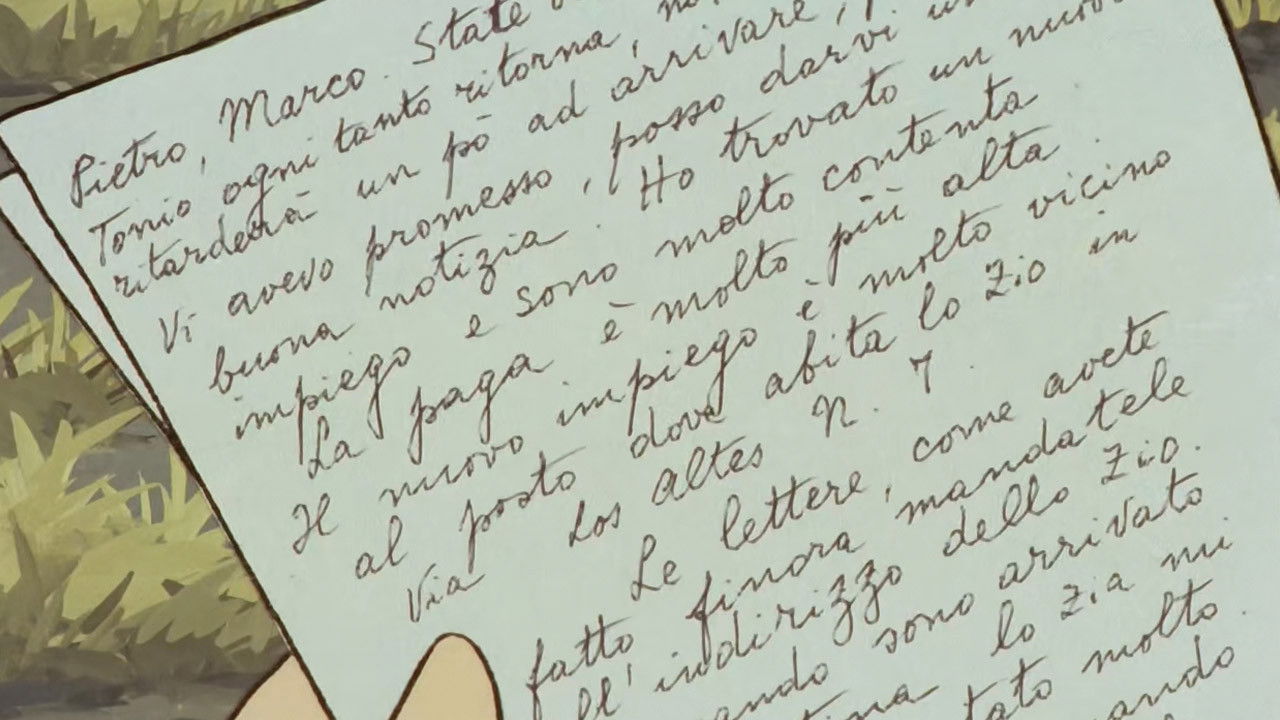 Pietro, Marco. State
Tonio ogni tanto ritorna,
ritarderà un pò ad arrivare,
Vi avevo promesso, posso darvi
buona notizia. Ho trovato un nuovo
impiego e sono molto contenta
La paga è molto più alta.
Il nuovo impiego è molto vicino
al posto dove abita lo Zio in
Via Los altes N. 7.
Le lettere, come avete
fatto finora mandatele
all'indirizzo dello Zio.
sono arrivato
lo zia mi
molto.